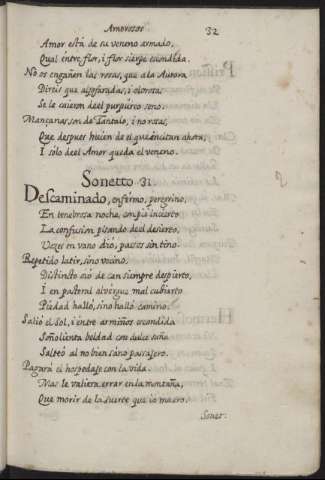 Amorosos
32
Amor está de su veneno armado,
Qual entre flor, i flor sierpe escondida.
No os engañen las rosas, que a la Aurora
Direis que aljofaradas, i olorosas
Se le caieron del purpureo seno.
Manzanas, son de Tantalo, i no rosas,
Que despues huien de el que incitan ahora,
I solo de el Amor queda el veneno.
Sonetto 31.
Descaminado, enfermo, peregrino,
En tenebrosa noche, con pie incierto
La confusion pisando de el desierto,
Vozes en vano dió, passos sin tino.
Repetido latir, si no vecino,
Distincto oió de can siempre despierto,
I en pastoral alvergue mal cubierto
Piedad halló, si no halló camino.
Salió el Sol, i entre armiños escondida
Soñolienta beldad con dulce saña
Salteó al no bien sano passajero.
Pagará el hospedaje con la vida.
Mas le valiera errar en la montaña,
Que morir de la suerte que io muero.
Sonet.